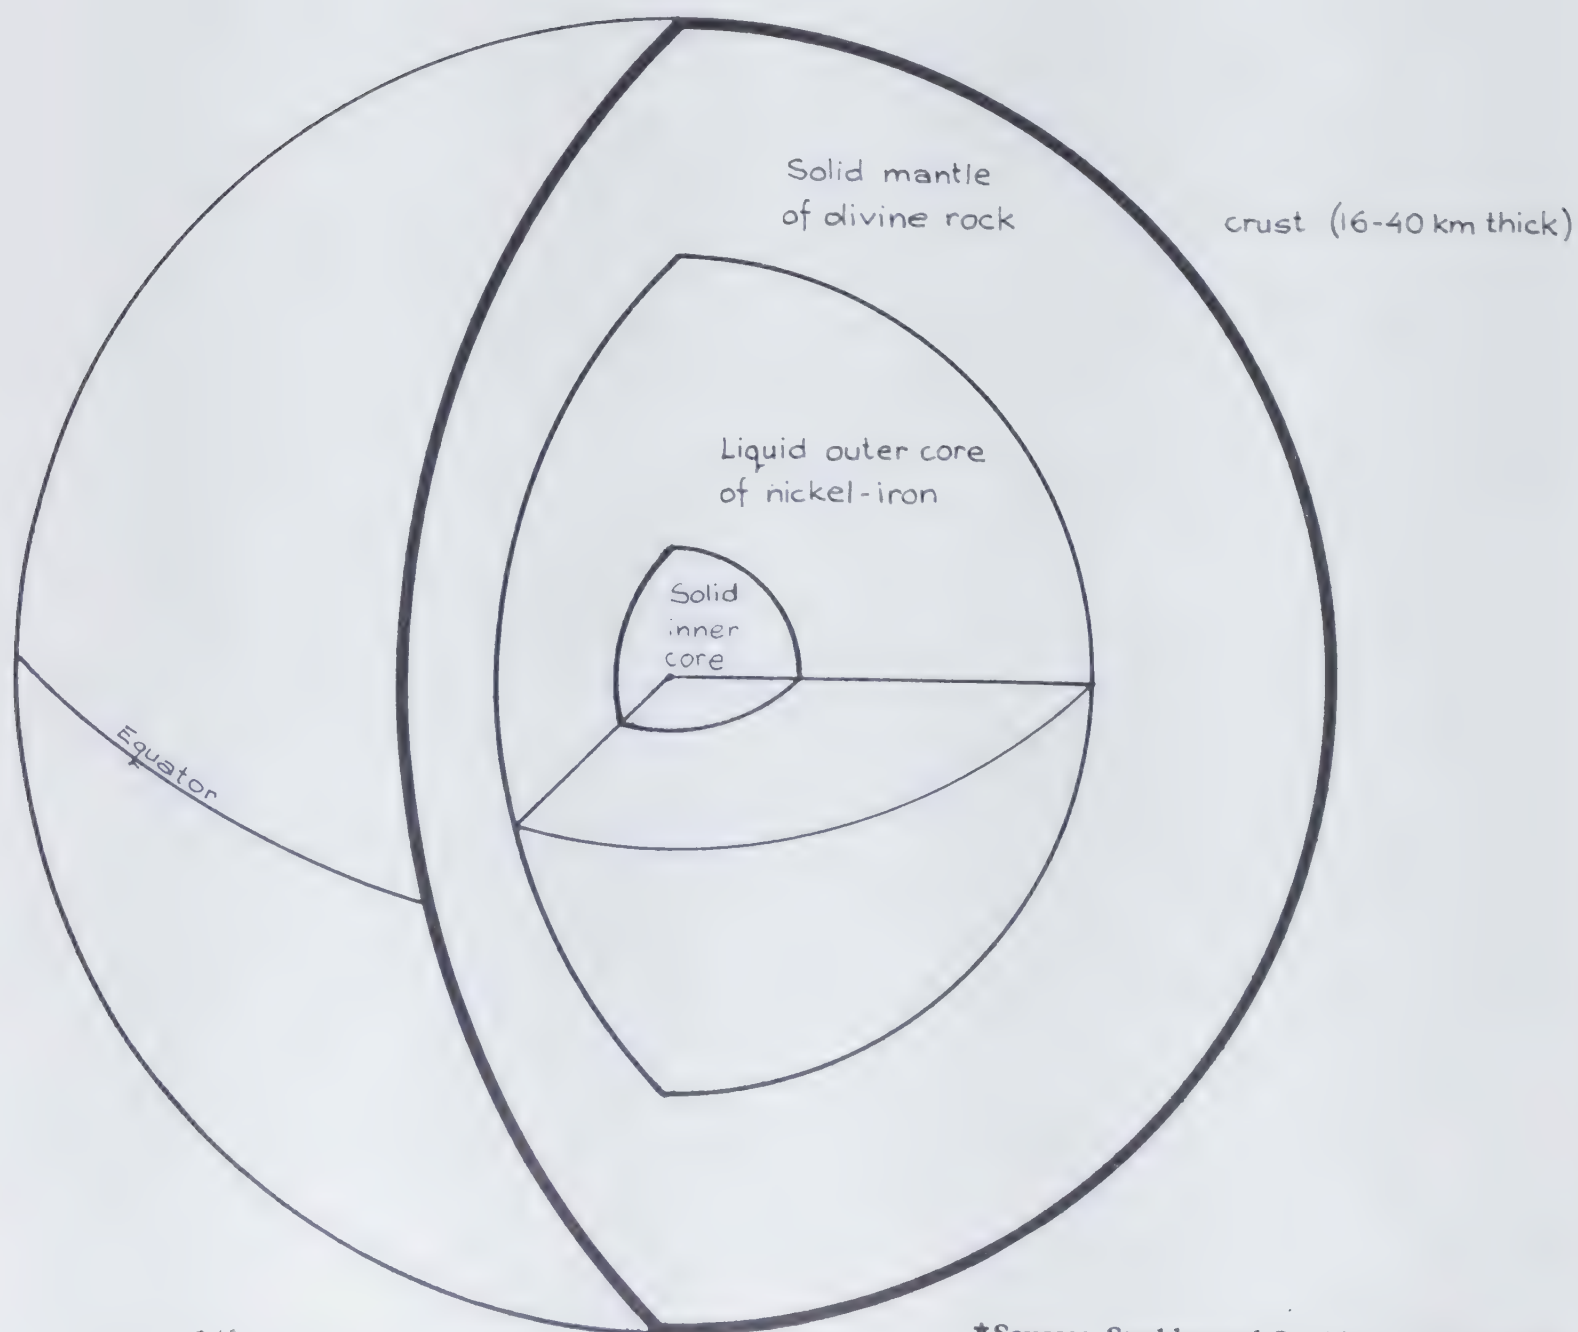 Solid mantle
of olivine rock
crust (16-40 km thick)
Liquid outer core
of nickel-iron
Solid
inner
core
Equator